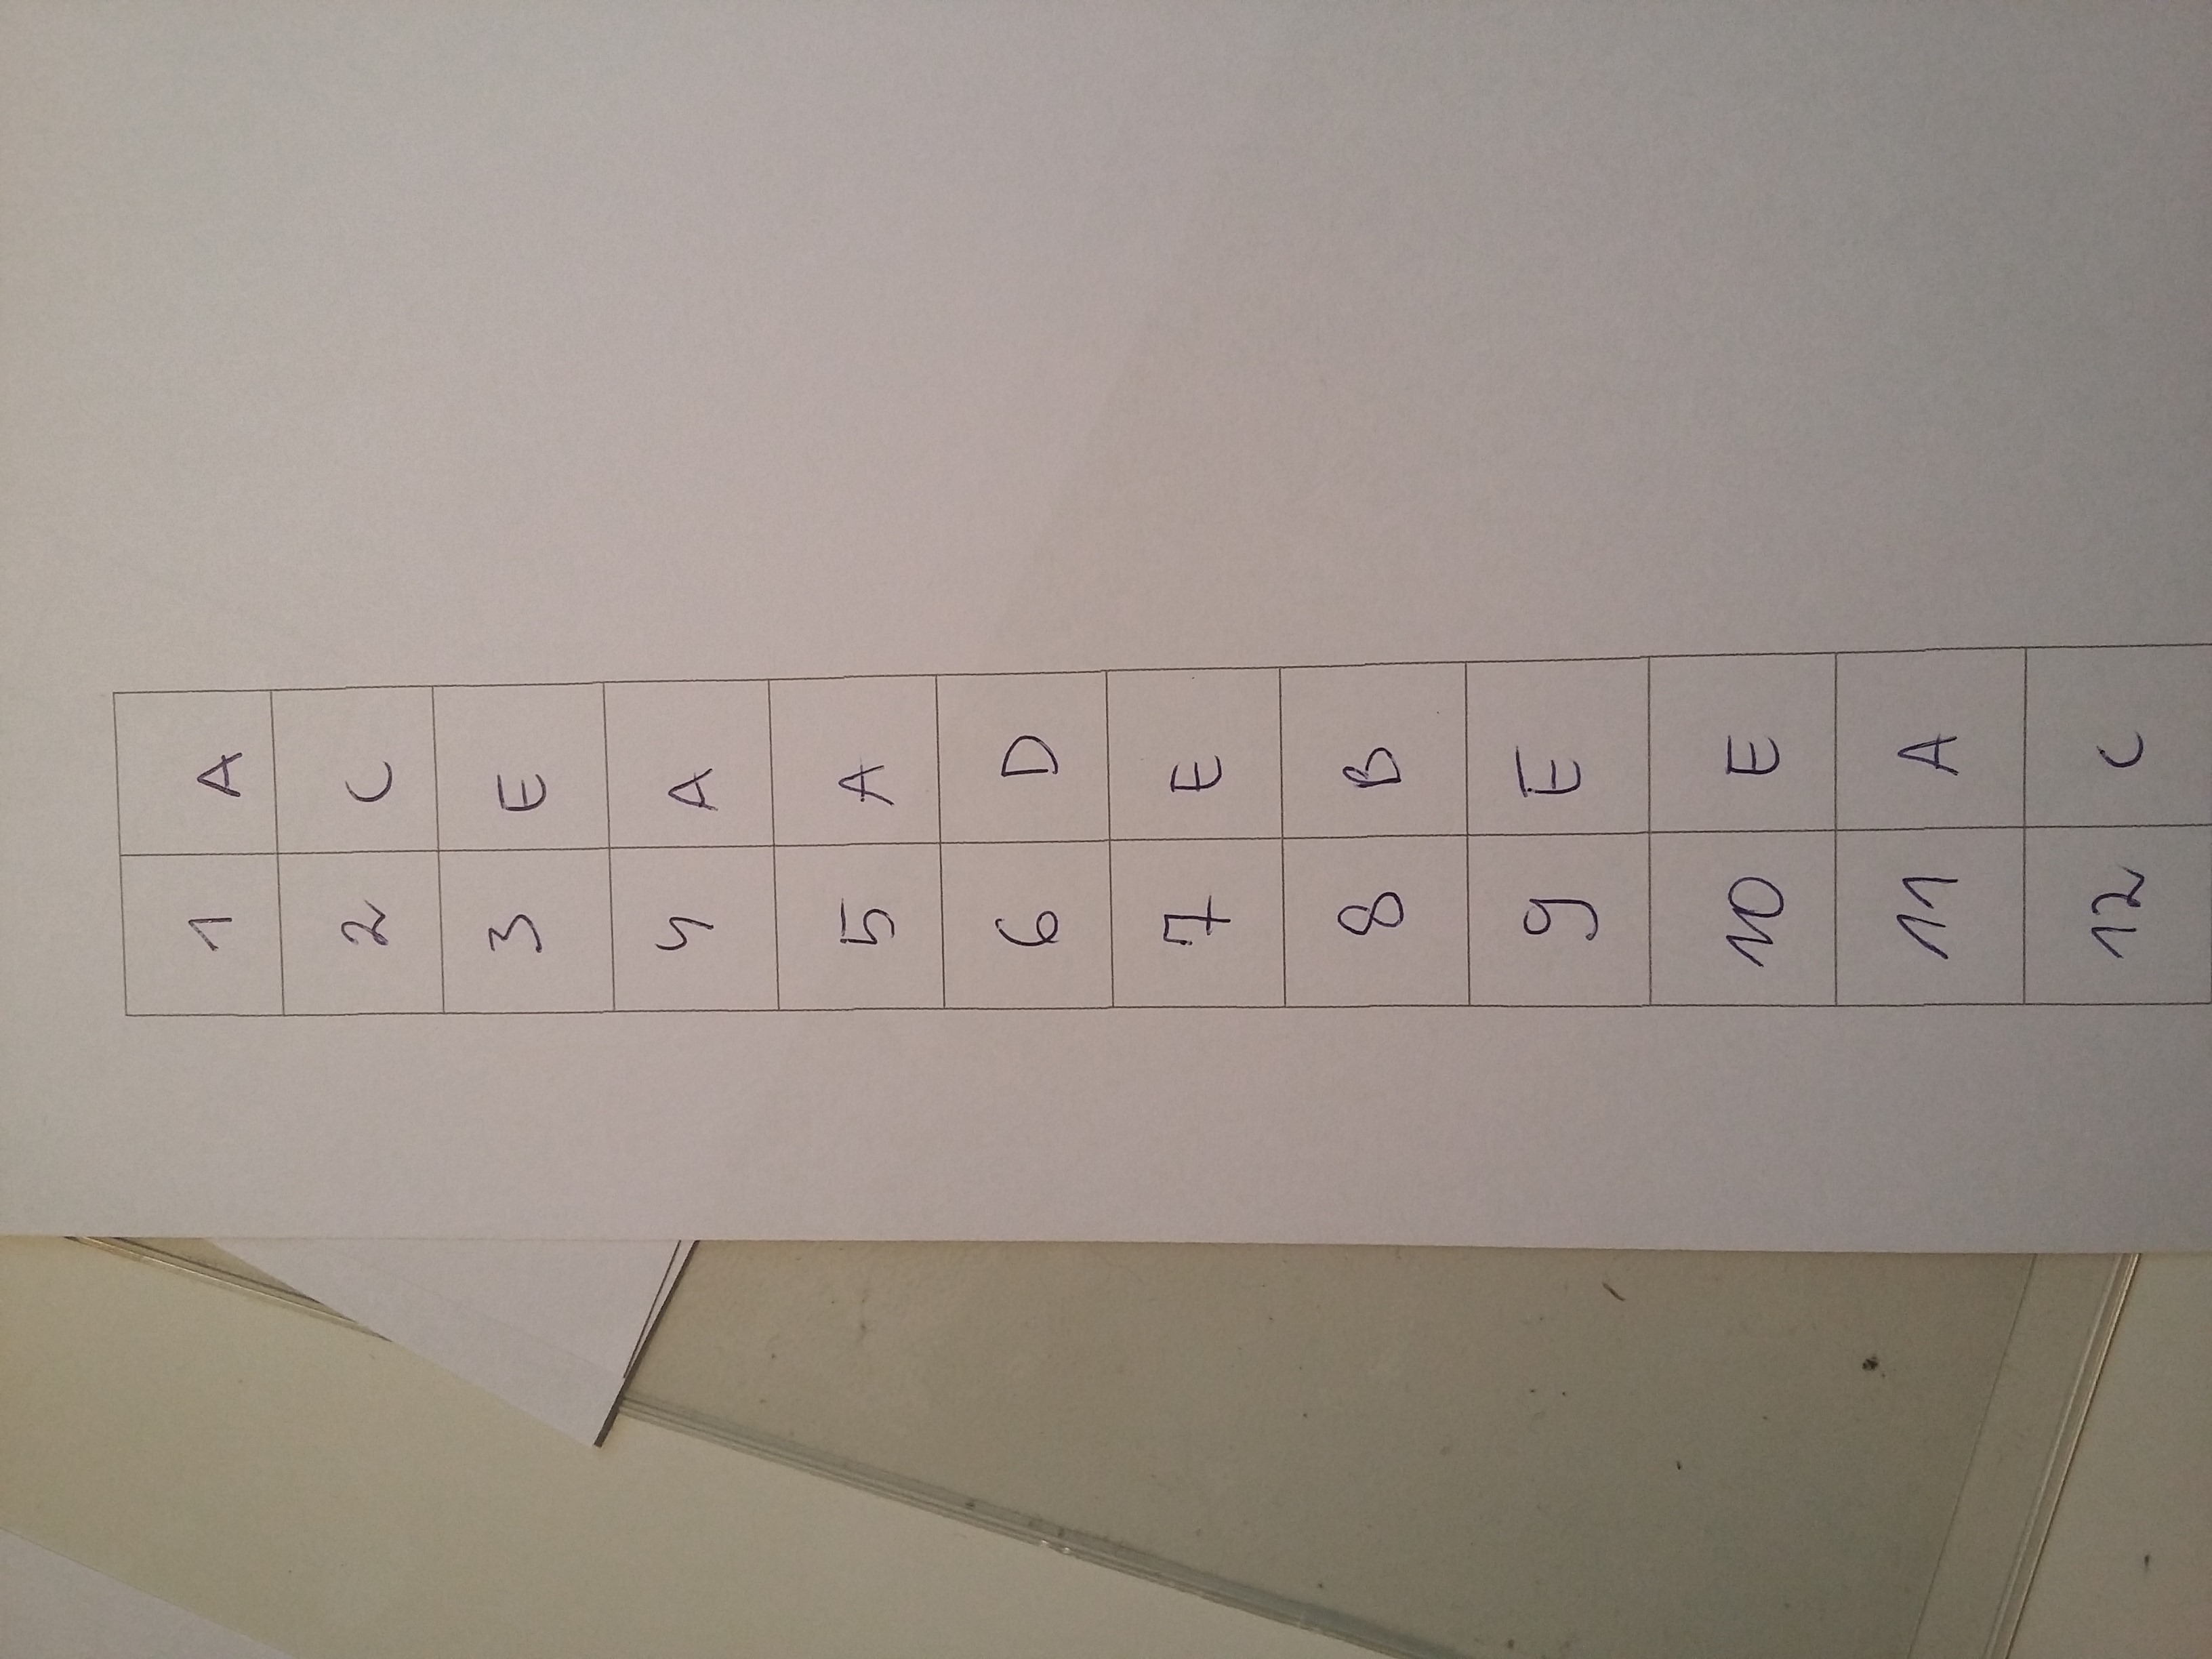 1 A
2 C
3 E
4 A
5 A
6 D
7 E
8 B
9 E
10 E
11 A
12 C